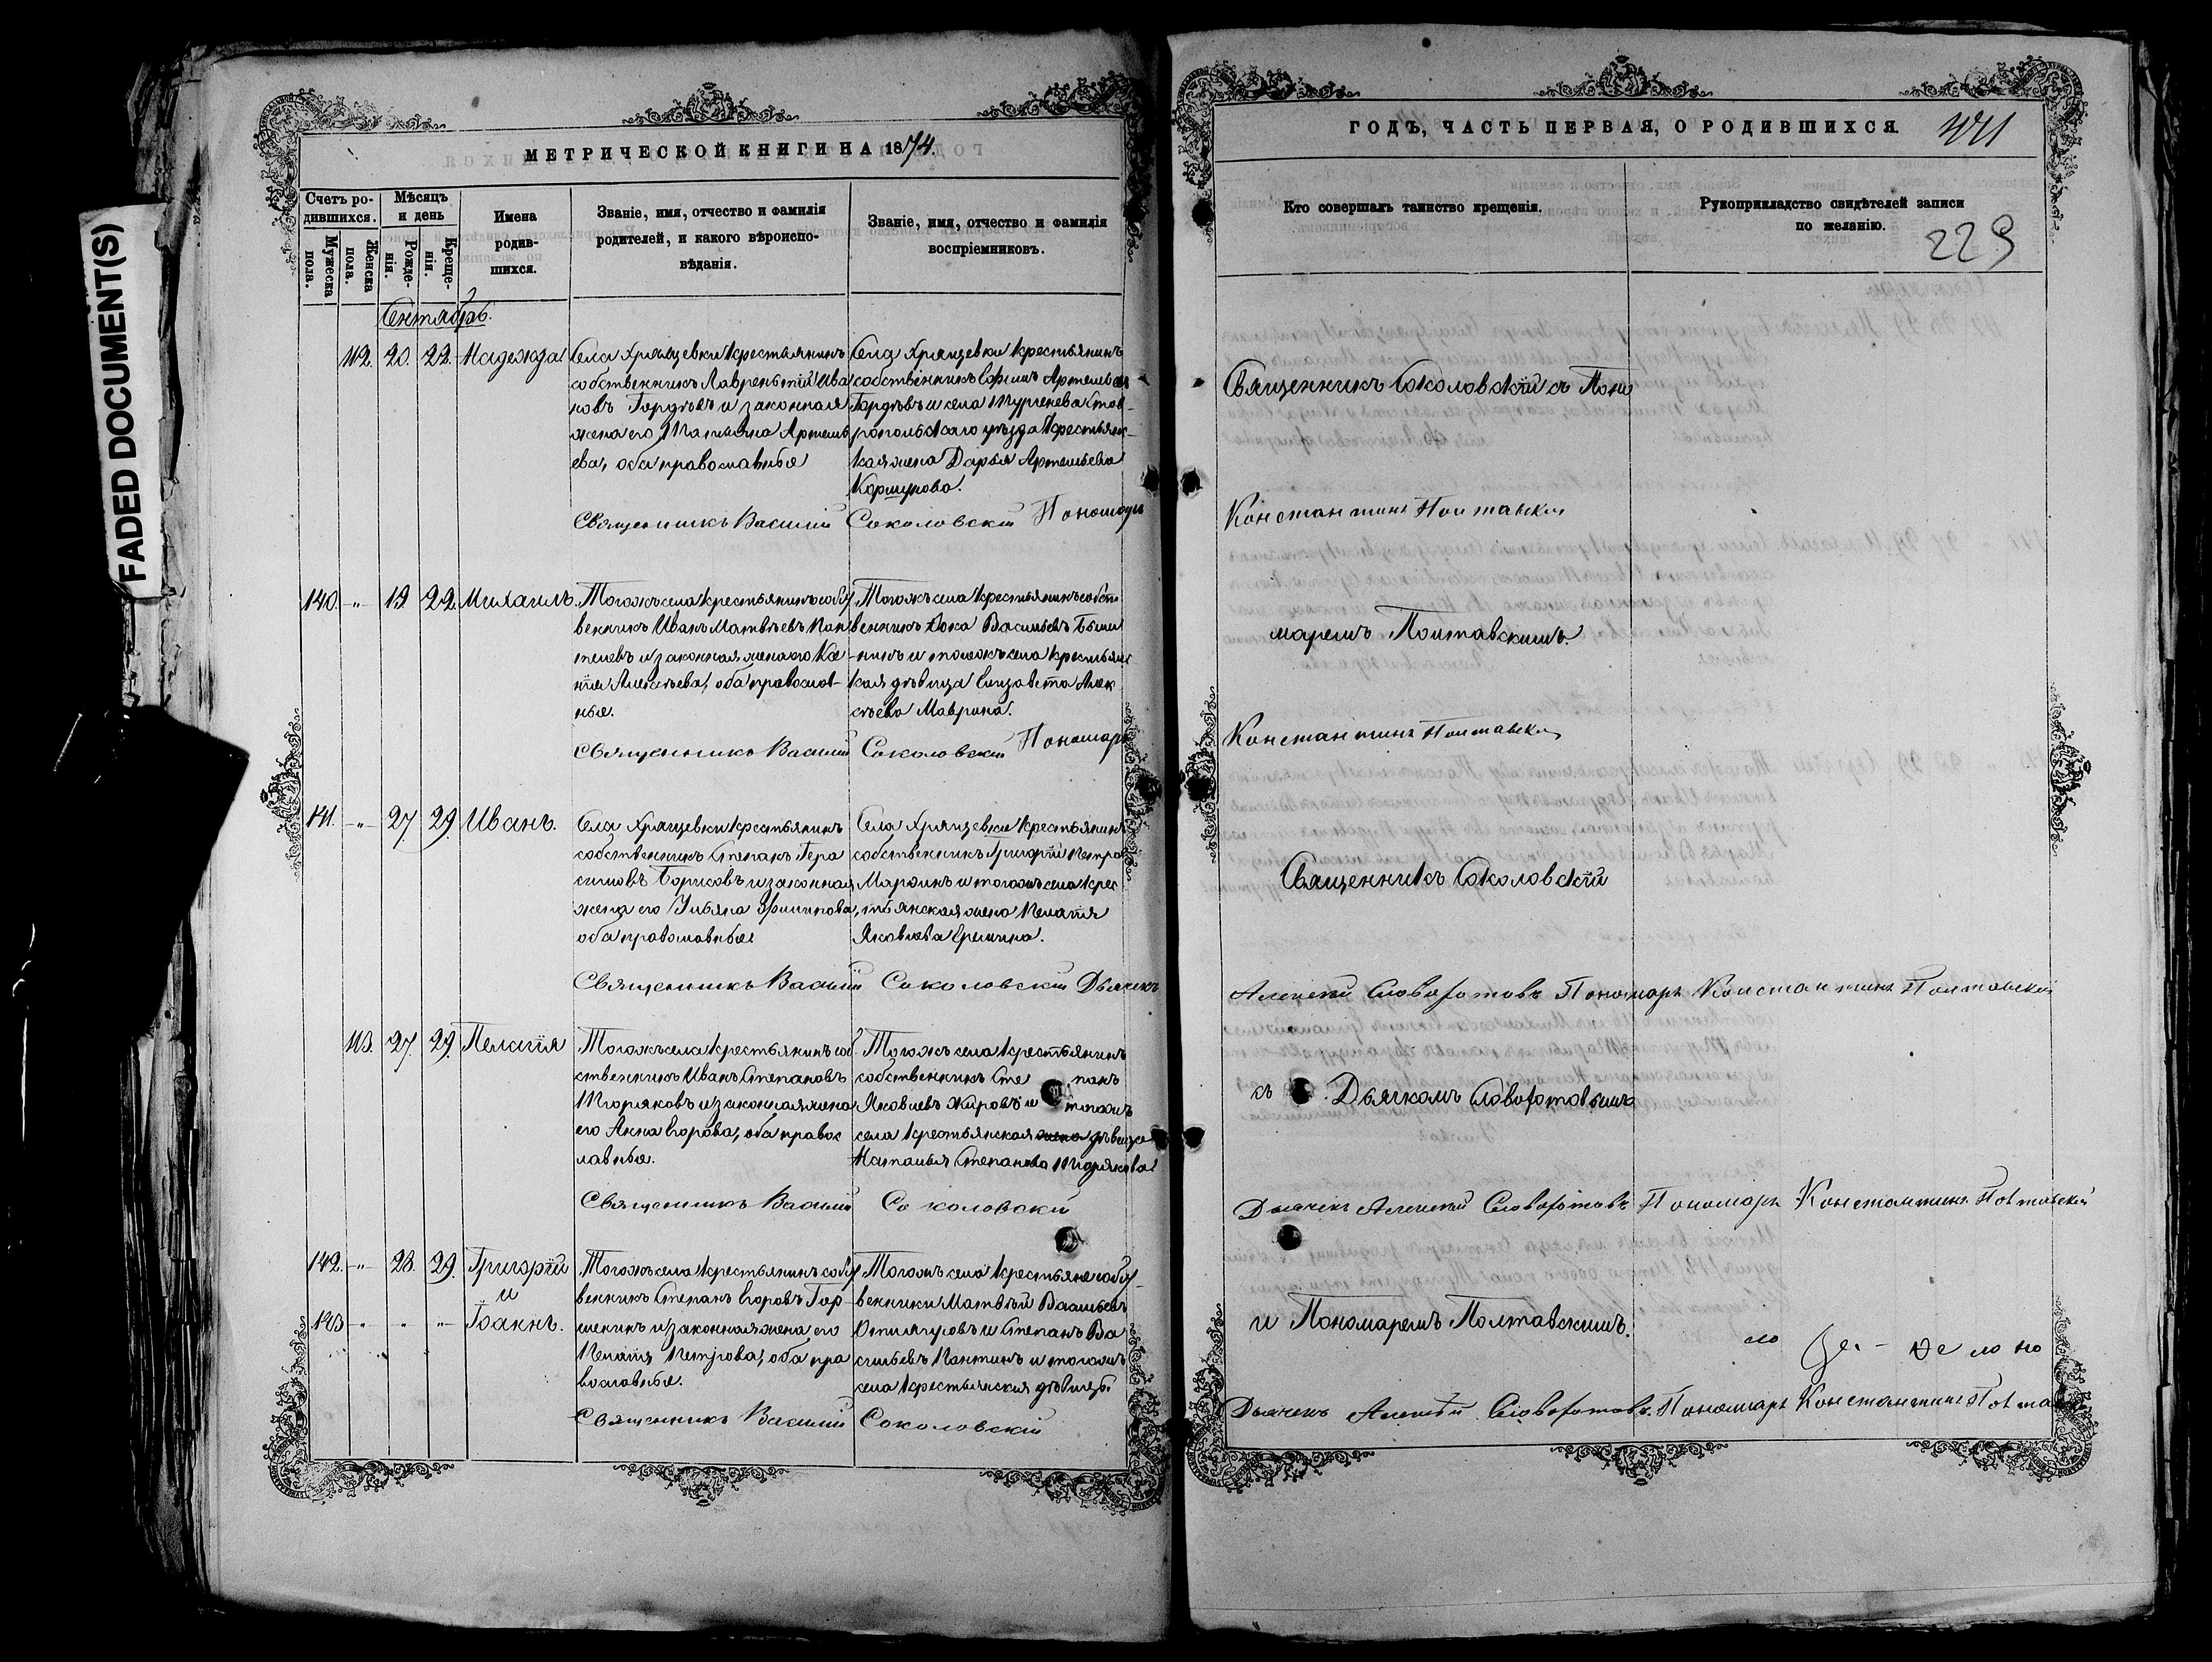 FADED DOCUMENT(S)
МЕТРИЧЕСКОЙ КНИГИ НА 1874.
Счетъ ро-
дившихся.
Мужеска
пола.
Женска
пола.
Мѣсяцъ
и день
Рожде-
нія.
Креще-
нія.
Имена
родив-
шихся.
Званіе, имя, отчество и фамилія
родителей, и какого вѣроиспо-
вѣданія.
Званіе, имя, отчество и фамилія
воспріемниковъ.
Сентябрь.
112. 20. 22. Надежда
Села Хрящевки крестьянинъ
собственникъ Лаврентій Ива
новъ Гордѣевъ и законная
жена его Татьяна Артемь
ева, оба православные
Села Хрящевки крестьянинъ
собственникъ Ефимъ Артемьевъ
Гордѣевъ и села Тургенева Став-
ропольскаго уѣзда крестьянс-
кая жена Дарья Артемьева
Коршунова.
Священникъ Василій Соколовскій Пономарь
140. -"- 19. 22. Михаилъ.
Тогожъ села крестьянинъ собст
венникъ Иванъ Матвѣевъ Пан
телеевъ и законная жена его Ксе
нія Алексѣева, оба православ-
ные.
Тогожъ села крестьянинъ собст
венникъ Фока Васильевъ
и тогожъ села крестьянс-
кая дѣвица Елизавета Алек
сѣева Маврина.
Священникъ Василій Соколовскій Пономарь
141. -"- 27. 29. Иванъ.
Села Хрящевки крестьянинъ
собственникъ Степанъ Гера
симовъ Борисовъ и законная
жена его Ульяна Филиппова,
оба православные
Села Хрящевки крестьянинъ
собственникъ Григорій Петров
и тогожъ села крес
тьянская жена Пелагія
Яковлева Еремина.
Священникъ Василій Соколовскій Дьячекъ
113. 27. 29. Пелагія
Тогожъ села крестьянинъ соб
ственникъ Иванъ Степановъ
и законная жена
его Анна Егорова, оба правос
лавные.
Тогожъ села крестьянинъ
собственникъ Сте панъ
Яковлевъ Жировъ и тогожъ
села крестьянская жена дѣвица
Наталья Степанова
Священникъ Василій Соколовскій
142. -"- 28. 29. Григорій
и
143 -"- " -"- Іоаннъ.
Тогожъ села крестьянинъ собст
венникъ Степанъ Егоровъ Гор-
шенинъ и законная жена его
Пелагія Петрова, оба пра
вославные.
Тогожъ села крестьяне собст-
венники Матвѣй Васильевъ
и Степанъ Ва
сильевъ Пантинъ и тогожъ
села крестьянския дѣвицы
Священникъ Василій Соколовскій
ГОДЪ, ЧАСТЬ ПЕРВАЯ, О РОДИВШИХСЯ.
Кто совершалъ таинство крещенія.
Рукоприкладство свидѣтелей записи
по желанію.
229
Священникъ Соколовскій съ Поно
Константинъ Полтавскій
маремъ Полтавскимъ.
Константинъ Полтавскій
Священникъ Соколовскій
Алексѣй Словоротовъ Пономарь Константинъ Полтавскій
съ Дьячкомъ Словоротовымъ
Дьячекъ Алексѣй Словоротовъ Пономарь Константинъ Полтавскій
и Пономаремъ Полтавскимъ.
Дьячекъ Алексѣй Словоротовъ. Пономарь Константинъ Полта